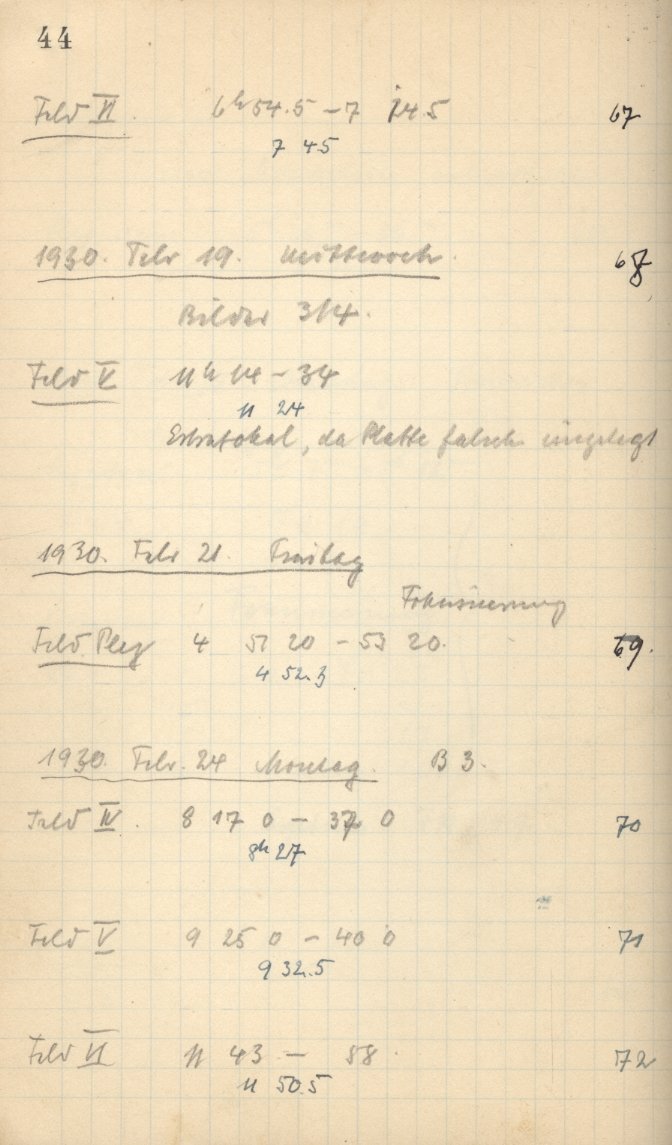 44
Feld VI. 6h 54.5 – 7 14 5 67
7 4 5
1930. Febr 19. Mittwoch. 68
Bilder 3/4.
Feld V 11h 14 – 34
11 24
Extrafokal, da Platte falsch eingelegt
1930. Febr 21. Freitag
Fokussierung
Feld Plej 4 51 20 – 53 20. 69.
4 52.3
1930. Febr. 24 Montag. B 3.
Feld IV. 8 17 0 – 37 0 70
8h 27
Feld V 9 25 0 – 40 0 71
9 32.5
Feld VI 11 43 – 58. 72
11 50.5